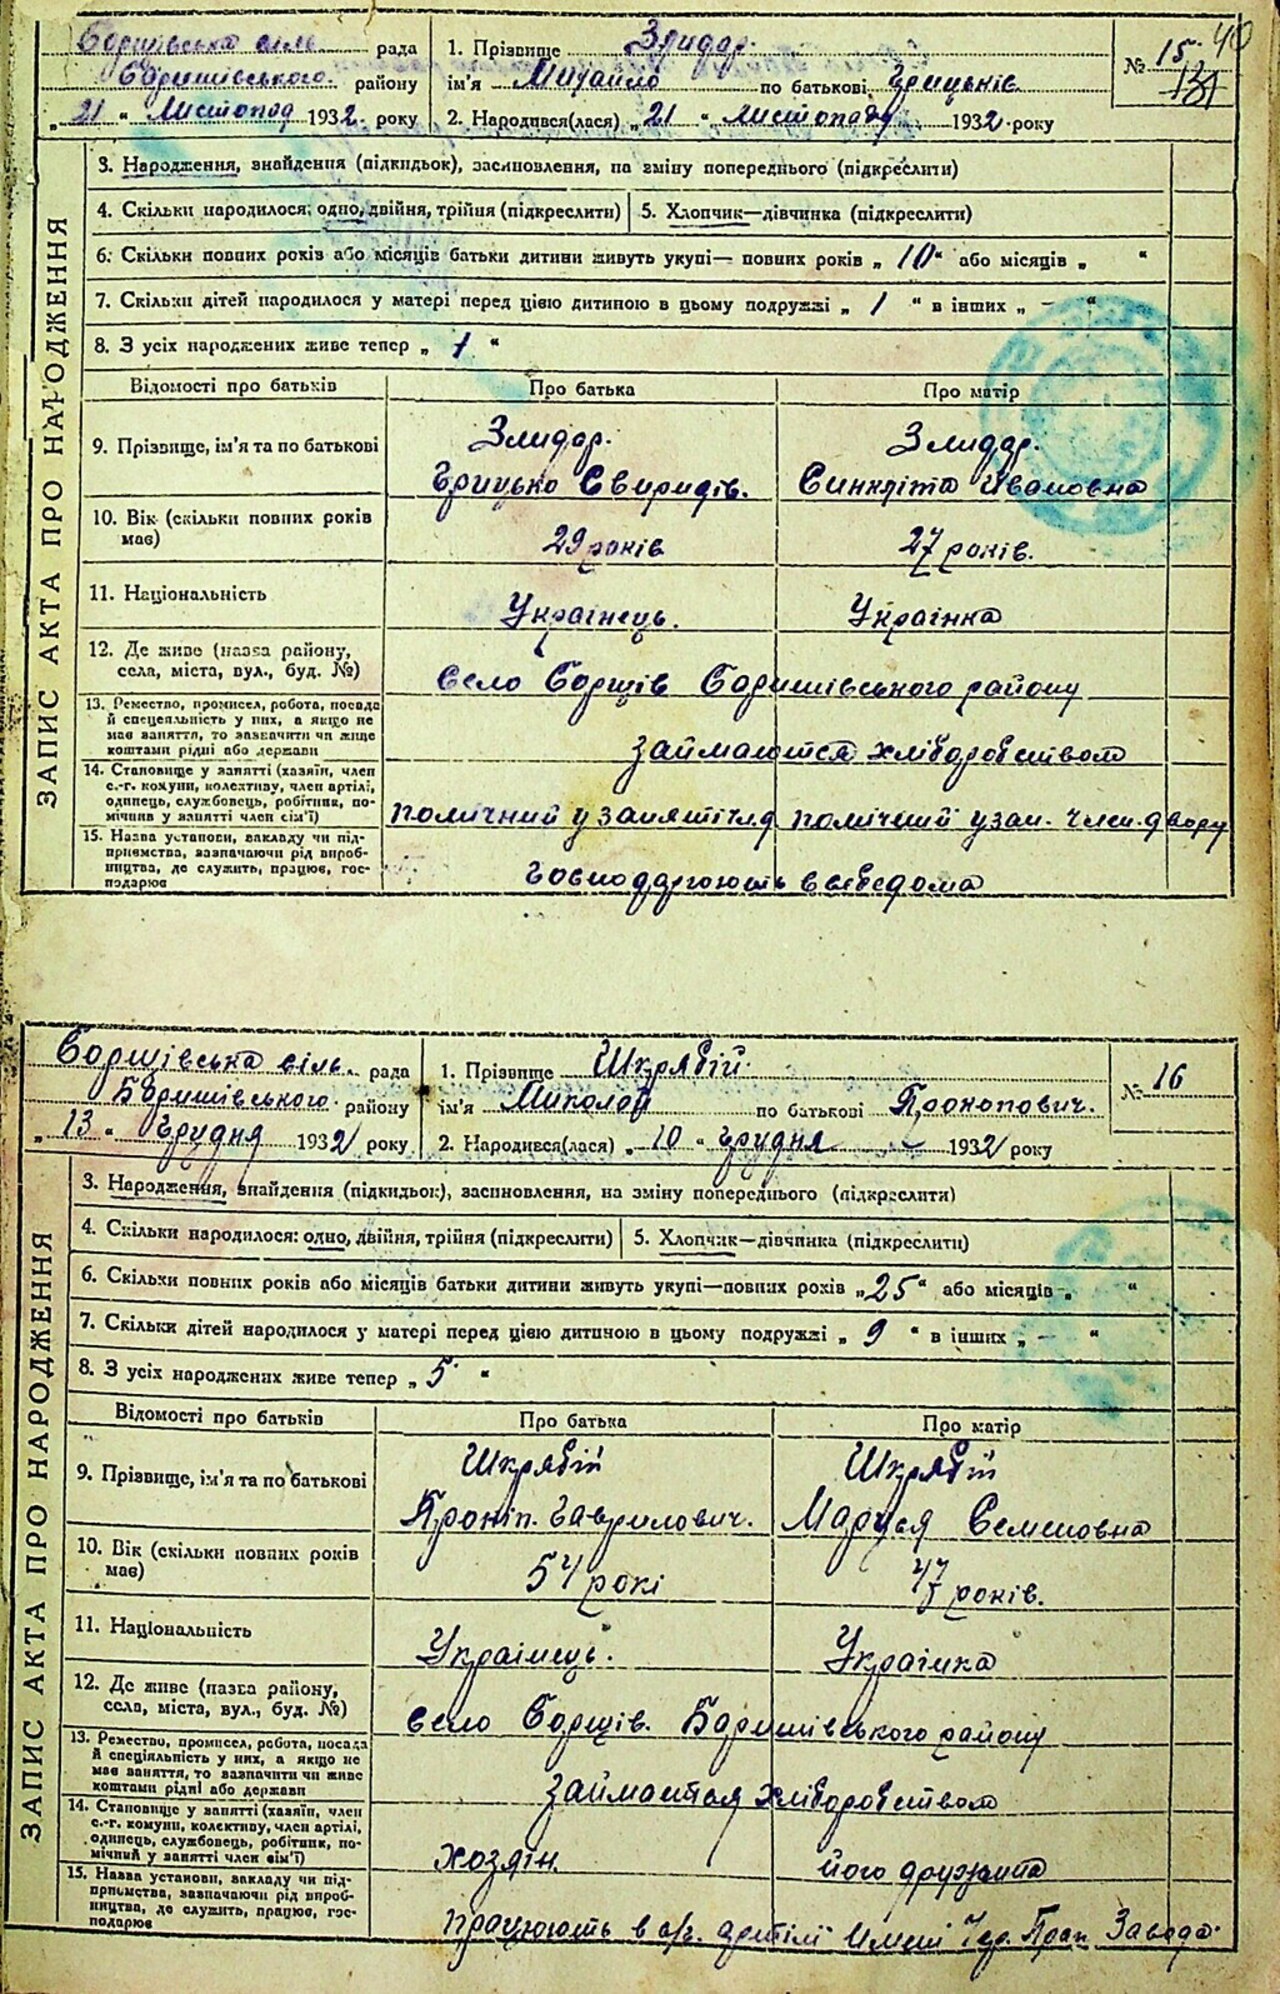 40
Борщівська сіль. рада
Баришівського району
„ 21 “ Листопад 1932 року
1. Прізвище Злидар.
ім'я Михайло по батькові Грицьків
2. Народився(лася) „ 21 “ Листопада 1932 року
№ 15
131
ЗАПИС АКТА ПРО НАРОДЖЕННЯ
3. Народження, знайдення (підкидьок), засиновлення, на зміну попереднього (підкреслити)
4. Скільки народилося: одно, двійня, трійня (підкреслити) 5. Хлопчик—дівчинка (підкреслити)
6. Скільки повних років або місяців батьки дитини живуть укупі— повних років „ 10 “ або місяців „ “
7. Скільки дітей народилося у матері перед цією дитиною в цьому подружжі „ 1 “ в інших „ — “
8. З усіх народжених живе тепер „ 1 “
Відомості про батьків Про батька Про матір
9. Прізвище, ім'я та по батькові
Злидар. Злидар.
Грицько Свиридів. Синкліта Ивановна
10. Вік (скільки повних років має)
29 років 27 років.
11. Національність
Українець. Українка
12. Де живе (назва району, села, міста, вул., буд. №)
Село Борщів Баришівського району
13. Ремество, промисел, робота, посада й спеціяльність у них, а якщо не має заняття, то зазначити чи живе коштами рідні або держави
займаются хліборобством
14. Становище у занятті (хазяїн, член с.-г. комуни, колективу, член артілі, одинець, службовець, робітник, помічник у занятті член сім'ї)
помічний у заняті чл.д помічний у зан. член.двору
15. Назва установи, закладу чи підприємства, зазначаючи рід виробництва, де служить, працює, господарює
Господарюють в себе дома
Борщівська сіль. рада
Баришівського району
„ 13 “ Грудня 1932 року
1. Прізвище Шкрябій.
ім'я Миколай по батькові Прокопович.
2. Народився(лася) „ 10 “ Грудня 1932 року
№ 16
ЗАПИС АКТА ПРО НАРОДЖЕННЯ
3. Народження, знайдення (підкидьок), засиновлення, на зміну попереднього (підкреслити)
4. Скільки народилося: одно, двійня, трійня (підкреслити) 5. Хлопчик—дівчинка (підкреслити)
6. Скільки повних років або місяців батьки дитини живуть укупі—повних років „ 25 “ або місяців „ “
7. Скільки дітей народилося у матері перед цією дитиною в цьому подружжі „ 9 “ в інших „ — “
8. З усіх народжених живе тепер „ 5 “
Відомості про батьків Про батька Про матір
9. Прізвище, ім'я та по батькові
Шкрябій Шкрябій
Прокіп. Гаврилович. Маруся Семеновна
10. Вік (скільки повних років має)
54 рокі 47 років.
11. Національність
Українець. Українка
12. Де живе (назва району, села, міста, вул., буд. №)
село Борщів. Баришівського району
13. Ремество, промисел, робота, посада й спеціяльність у них, а якщо не має заняття, то зазначити чи живе коштами рідні або держави
займаються хліборобством
14. Становище у занятті (хазяїн, член с.-г. комуни, колективу, член артілі, одинець, службовець, робітник, помічний у занятті член сім'ї)
хозяїн. його дружина
15. Назва установи, закладу чи підприємства, зазначаючи рід виробництва, де служить, працює, господарює
працюють в с/г. артілі Имені Чер. Прап. Завода